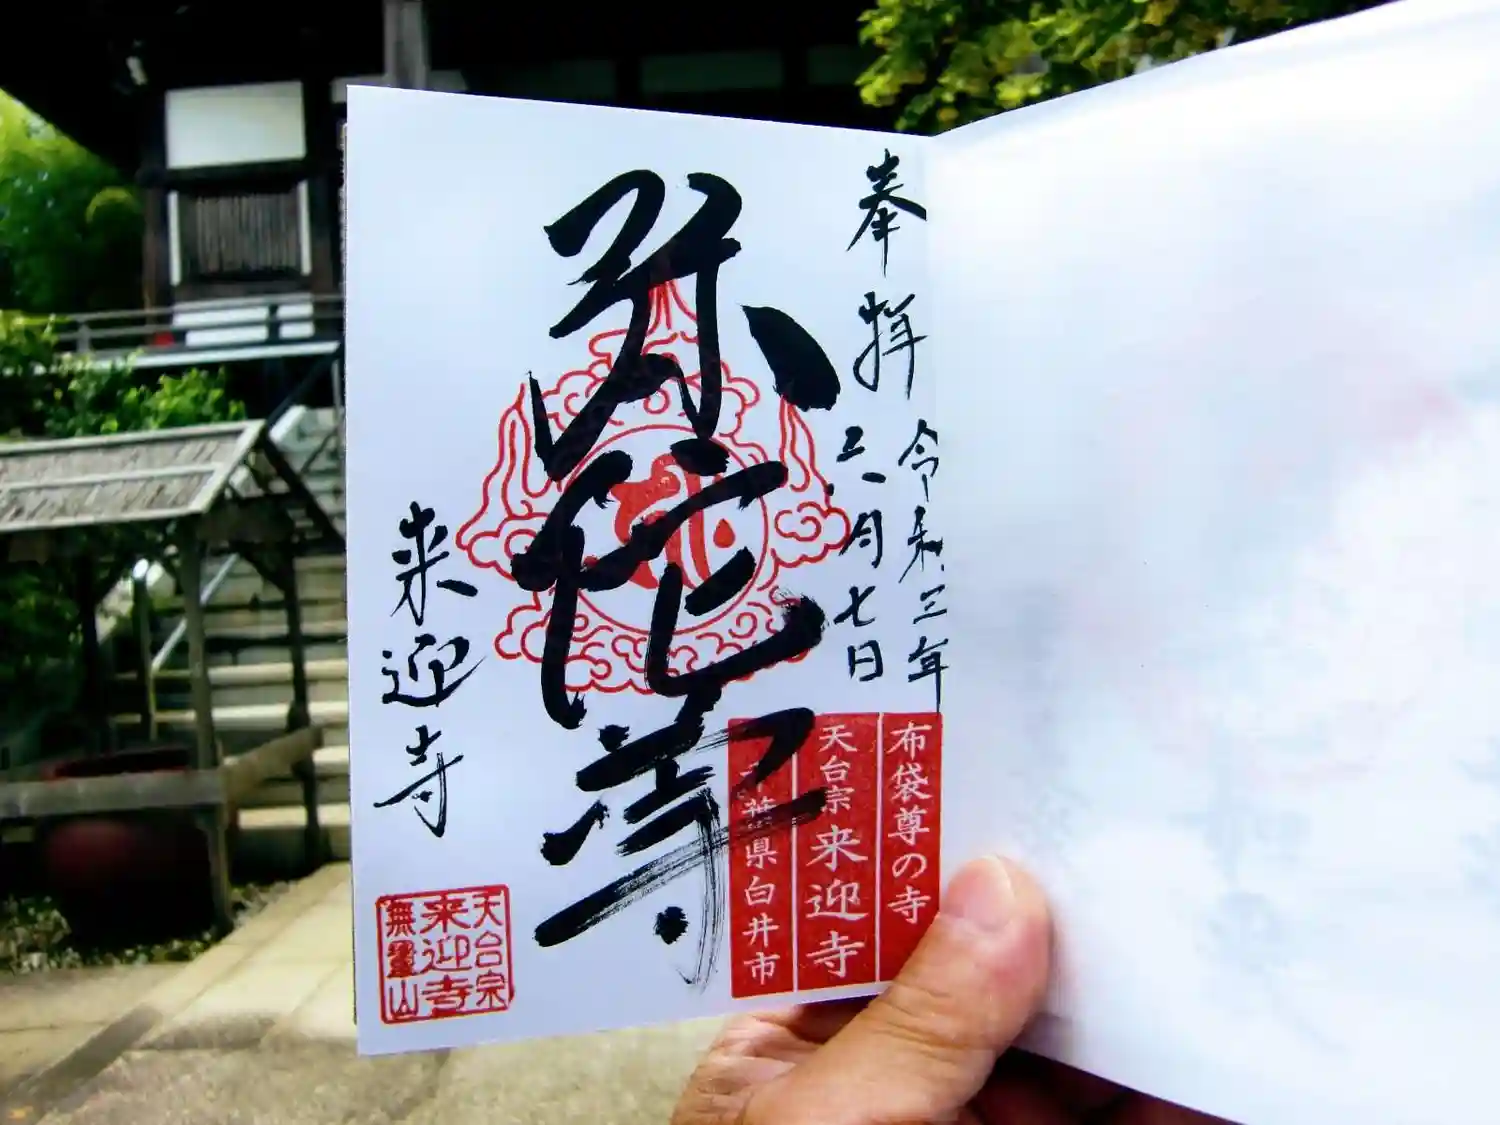 奉拝
令和三年
六月七日
布袋尊の寺
天台宗 来迎寺
千葉県白井市
弥陀尊
来迎寺
天台宗
来迎寺
無量山